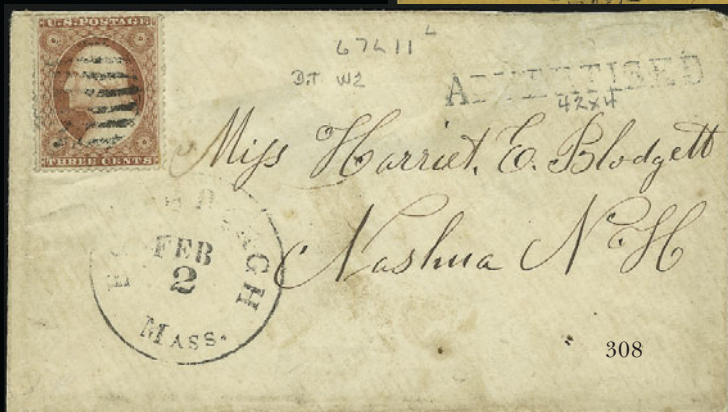 U.S. POSTAGE
THREE CENTS
67L11L
D.T W2
ADVERTISED
42x4
Miss Harriet. E. Blodgett
Nashua N.H
FEB
2
MASS.
308